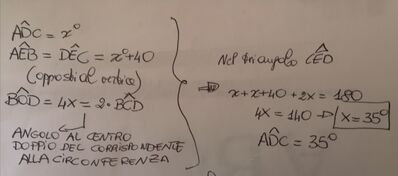 AD̂C = x°
AÊB = DÊC = x°+40
(opposti al vertice)
BÔD = 4x = 2·BĈD
ANGOLO AL CENTRO
DOPPIO DEL CORRISPONDENTE
ALLA CIRCONFERENZA
Nel triangolo CÊD
⇒ x+x+40+2x = 180
4X = 140 → X = 35°
AD̂C = 35°